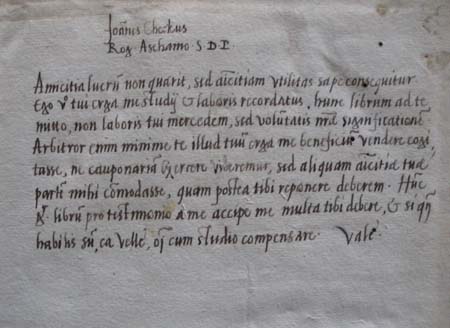 Joānnis Checkus
Rog. Aschamo S. D. P.
Amicitia lucrū non quærit, sed amicitiam vtilitas sæpe consequitur.
Ego v̄ tui erga me studij & laboris recordatus, hunc librum ad te
mitto, non laboris tui mercedem, sed volūtatis significationē
Arbitror enim minime te illud tuū erga me beneficiū vendere cogi,
tasse, ne cauponariā exercere videremur, sed aliquam amicitiæ tuæ
partē mihi cōmodasse, quam postea tibi reponere deberem. Hūc
librum pro testimonio a me accipe me multa tibi debere, & si
habilis sū, ea velle, cum studio compensare. Vale